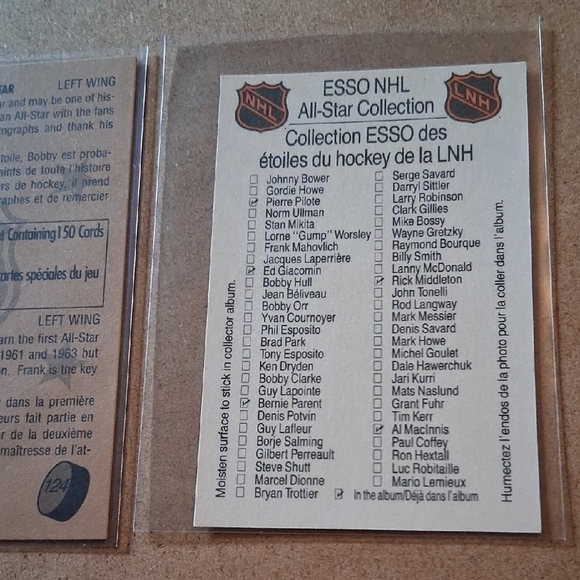 TAR LEFT WING
ar and may be one of his-
an All-Star with the fans
ographs and thank his
étoile, Bobby est proba-
aints de toute l'histoire
rs de hockey, il prend
raphes et de remercier
et Containing 150 Cards
cartes spéciales du jeu
LEFT WING
arn the first All-Star
1961 and 1963 but
on. Frank is the key
dans la première
eurs fait partie en
r de la deuxième
maîtresse de l'at-
124
NHL
ESSO NHL
All-Star Collection
LNH
Collection ESSO des
étoiles du hockey de la LNH
Johnny Bower
Gordie Howe
Pierre Pilote
Norm Ullman
Stan Mikita
Lorne "Gump" Worsley
Frank Mahovlich
Jacques Laperrière
Ed Giacomin
Bobby Hull
Jean Béliveau
Bobby Orr
Yvan Cournoyer
Phil Esposito
Brad Park
Tony Esposito
Ken Dryden
Bobby Clarke
Guy Lapointe
Bernie Parent
Denis Potvin
Guy Lafleur
Borje Salming
Gilbert Perreault
Steve Shutt
Marcel Dionne
Bryan Trottier
Serge Savard
Darryl Sittler
Larry Robinson
Clark Gillies
Mike Bossy
Wayne Gretzky
Raymond Bourque
Billy Smith
Lanny McDonald
Rick Middleton
John Tonelli
Rod Langway
Mark Messier
Denis Savard
Mark Howe
Michel Goulet
Dale Hawerchuk
Jari Kurri
Mats Naslund
Grant Fuhr
Tim Kerr
Al MacInnis
Paul Coffey
Ron Hextall
Luc Robitaille
Mario Lemieux
In the album/Déjà dans l'album
Moisten surface to stick in collector album.
Humectez l'endos de la photo pour la coller dans l'album.